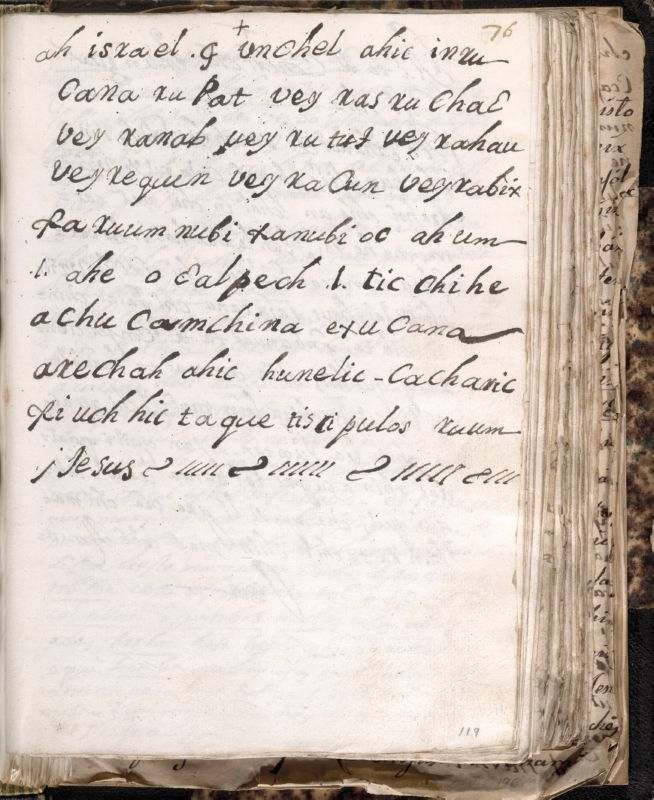 76
ah israel . g vnchel ahic inru
Cana ru Pat vey ras ru Chaɛ
vey ranab vey ru tuɛ vey rahau
vey requen vey ra Cun vey rabix
ɛa ruum nubi ɛanubi oc ah um
.l. ahe o ɛalpech .l. tic chihe
achu Camchina exu Cana
arechah ahic hunelic - Cacharic
ɛi uch hic ta que tis ri pulos ruum
j Jesus
119